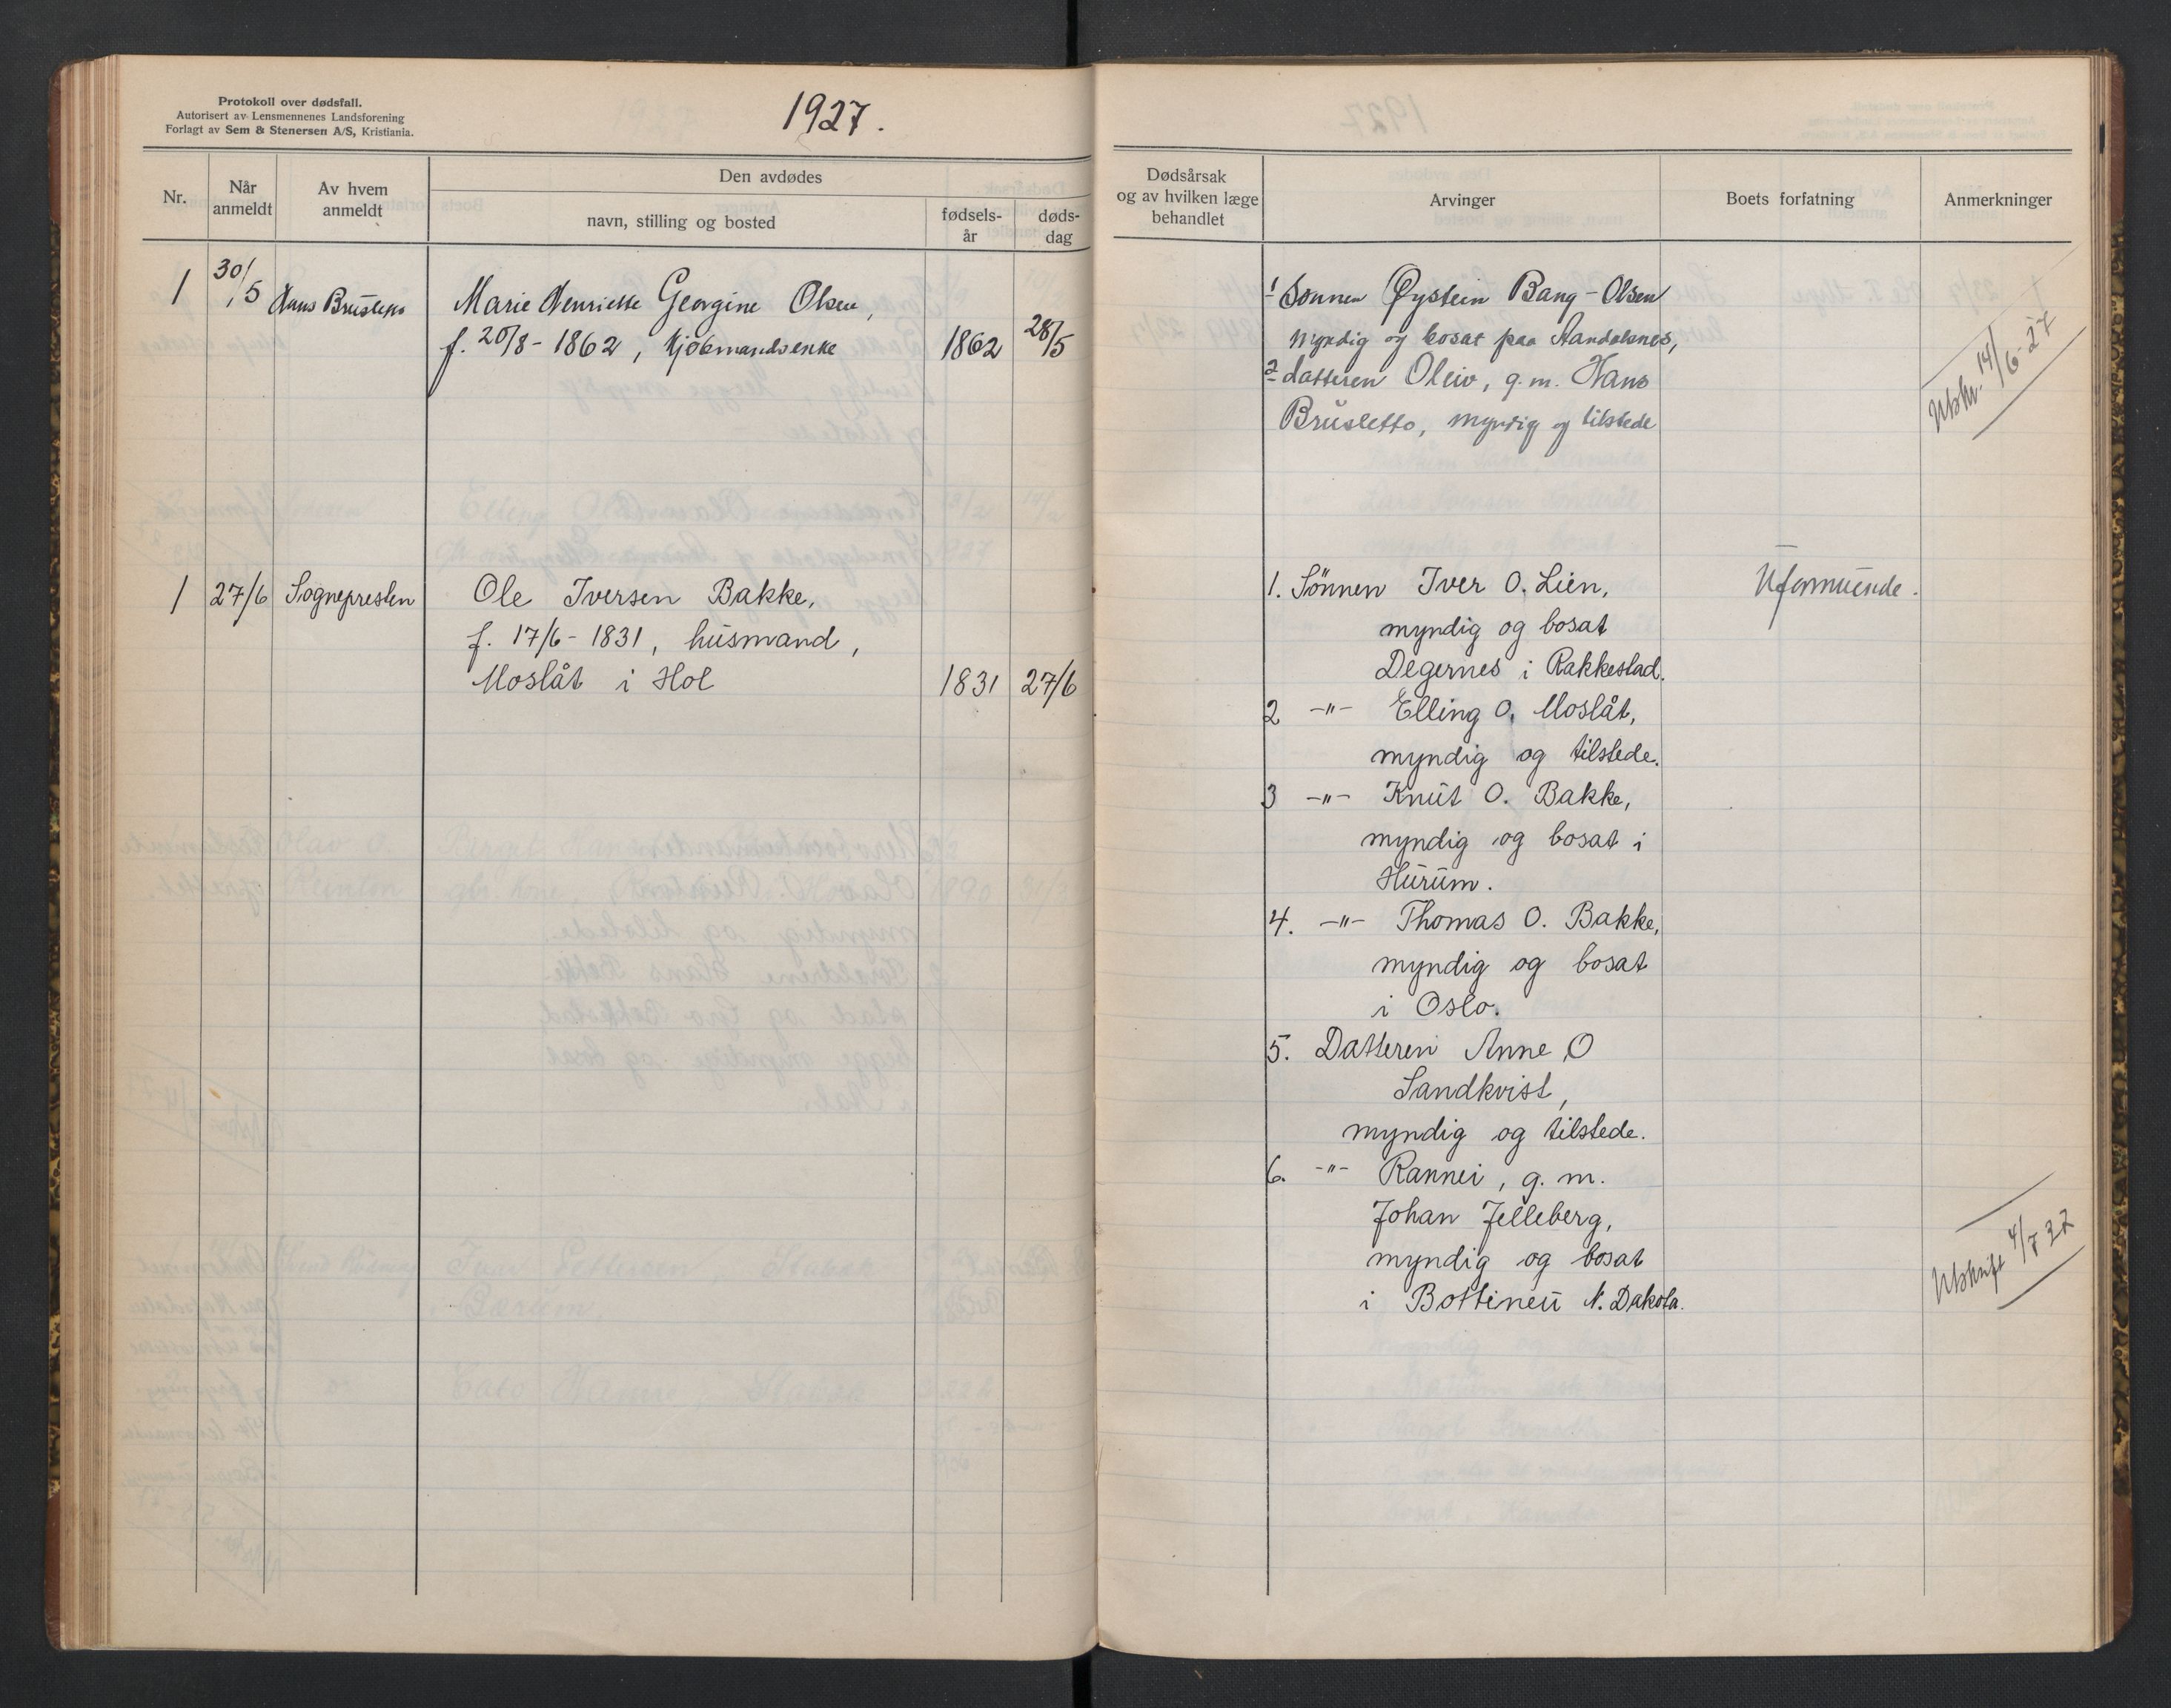 Protokoll over dødsfall.
Autorisert av Lensmennenes Landsforening
Forlagt av Sem & Stenersen A/S, Kristiania.
1927.
Nr.
Når anmeldt
Av hvem anmeldt
Den avdødes
navn, stilling og bosted
fødsels-
år
døds-
dag
1 30/5 Hans Brusletto Marie Henriette Georgine Olsen,
f. 20/8 - 1862, Kjøbmandsenke 1862 28/5
1 27/6 Sognepresten Ole Iversen Bakke,
f. 17/6 - 1831, husmand,
Moslåt i Hol 1831 27/6
Dødsårsak
og av hvilken læge
behandlet
Arvinger
Boets forfatning
Anmerkninger
1 Sønnen Øystein Bang-Olsen
myndig og bosat paa Aandalsnes,
2 datteren Oleiv, g.m. Hans
Brusletto, myndig og tilstede
Utskr. 14/6-27
1. Sönnen Iver O. Lien, Uformuende.
myndig og bosat
Degernes i Rakkestad.
2 -"- Elling O. Moslåt,
myndig og tilstede.
3 -"- Knut O. Bakke,
myndig og bosat i
Hurum.
4. -"- Thomas O. Bakke,
myndig og bosat
i Oslo.
5. Datteren Anne O
Sandkvist,
myndig og tilstede.
6. -"- Rannei, g. m.
Johan Jelleberg,
myndig og bosat
i Bottineu N. Dakota.
Utskrift 4/7 27